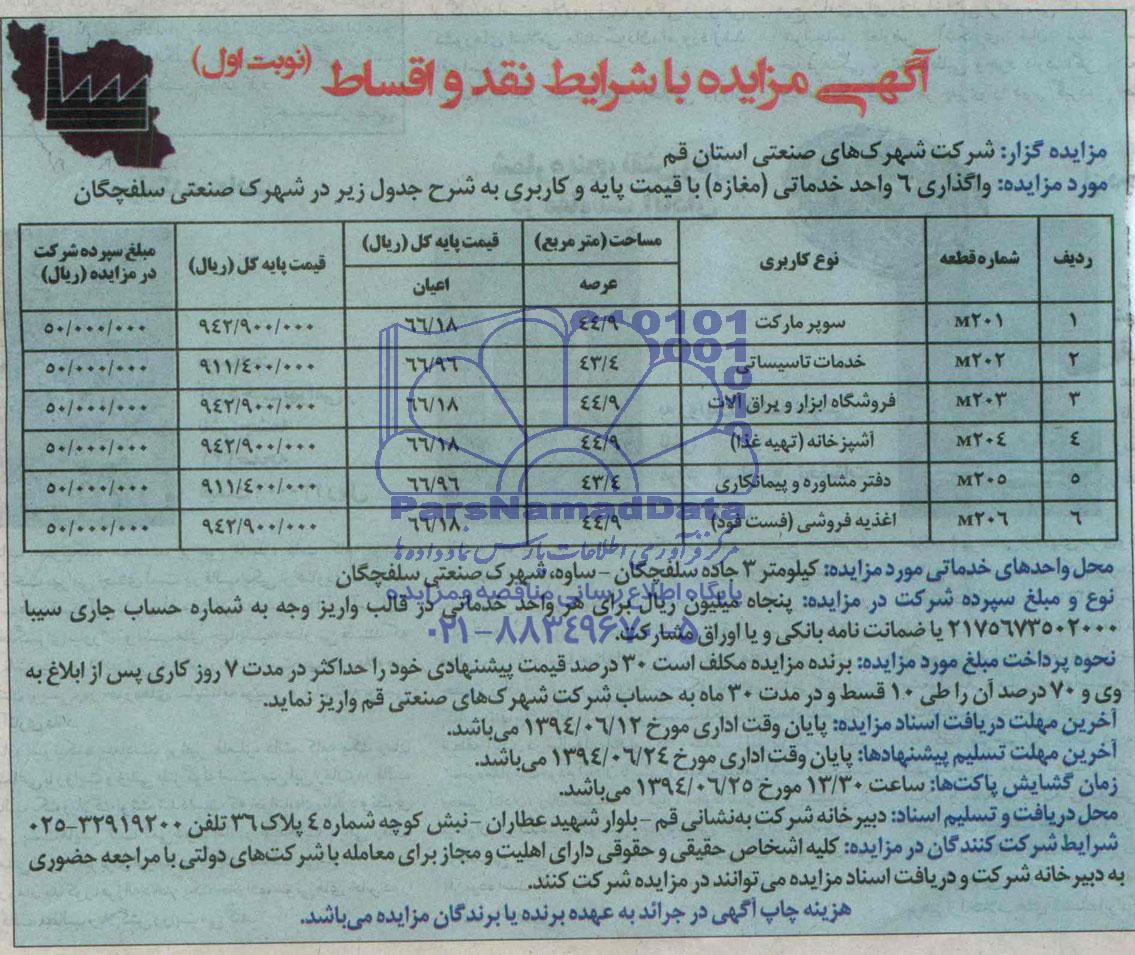 آگهی مزایده با شرایط نقد و اقساط (نوبت اول)
مزایده گزار: شرکت شهرک‌های صنعتی استان قم
مورد مزایده: واگذاری ٦ واحد خدماتی (مغازه) با قیمت پایه و کاربری به شرح جدول زیر در شهرک صنعتی سلفچگان
ردیف شماره قطعه نوع کاربری مساحت (متر مربع) قیمت پایه کل (ریال) قیمت پایه کل (ریال) مبلغ سپرده شرکت در مزایده (ریال)
عرصه اعیان
۱ M۲۰۱ سوپر مارکت ٤٤/۹ ٦٦/۱۸ ۹٤۲/۹۰۰/۰۰۰ ۵۰/۰۰۰/۰۰۰
۲ M۲۰۲ خدمات تاسیساتی ٤۳/٤ ٦٦/۹٦ ۹۱۱/٤۰۰/۰۰۰ ۵۰/۰۰۰/۰۰۰
۳ M۲۰۳ فروشگاه ابزار و یراق آلات ٤٤/۹ ٦٦/۱۸ ۹٤۲/۹۰۰/۰۰۰ ۵۰/۰۰۰/۰۰۰
٤ M۲۰٤ آشپزخانه (تهیه غذا) ٤٤/۹ ٦٦/۱۸ ۹٤۲/۹۰۰/۰۰۰ ۵۰/۰۰۰/۰۰۰
۵ M۲۰۵ دفتر مشاوره و پیمانکاری ٤۳/٤ ٦٦/۹٦ ۹۱۱/٤۰۰/۰۰۰ ۵۰/۰۰۰/۰۰۰
٦ M۲۰٦ اغذیه فروشی (فست فود) ٤٤/۹ ٦٦/۱۸ ۹٤۲/۹۰۰/۰۰۰ ۵۰/۰۰۰/۰۰۰
ParsNamadData
مرکز فرآوری اطلاعات پارس نماد داده‌ها
پایگاه اطلاع رسانی مناقصه و مزایده
۰۲۱-۸۸۳٤۹٦۷۰-۵
محل واحدهای خدماتی مورد مزایده: کیلومتر ۳ جاده سلفچگان - ساوه، شهرک صنعتی سلفچگان
نوع و مبلغ سپرده شرکت در مزایده: پنجاه میلیون ریال برای هر واحد خدماتی در قالب واریز وجه به شماره حساب جاری سیبا
۲۱۷۵٦۷۳۵۰۲۰۰۰ یا ضمانت نامه بانکی و یا اوراق مشارکت.
نحوه پرداخت مبلغ مورد مزایده: برنده مزایده مکلف است ۳۰ درصد قیمت پیشنهادی خود را حداکثر در مدت ۷ روز کاری پس از ابلاغ به
وی و ۷۰ درصد آن را طی ۱۰ قسط و در مدت ۳۰ ماه به حساب شرکت شهرک‌های صنعتی قم واریز نماید.
آخرین مهلت دریافت اسناد مزایده: پایان وقت اداری مورخ ۱۳۹٤/۰٦/۱۲ می‌باشد.
آخرین مهلت تسلیم پیشنهادها: پایان وقت اداری مورخ ۱۳۹٤/۰٦/۲٤ می‌باشد.
زمان گشایش پاکت‌ها: ساعت ۱۳/۳۰ مورخ ۱۳۹٤/۰٦/۲۵ می‌باشد.
محل دریافت و تسلیم اسناد: دبیرخانه شرکت به‌نشانی قم - بلوار شهید عطاران - نبش کوچه شماره ٤ پلاک ۳٦ تلفن ۳۲۹۱۹۲۰۰-۰۲۵
شرایط شرکت کنندگان در مزایده: کلیه اشخاص حقیقی و حقوقی دارای اهلیت و مجاز برای معامله با شرکت‌های دولتی با مراجعه حضوری
به دبیرخانه شرکت و دریافت اسناد مزایده می‌توانند در مزایده شرکت کنند.
هزینه چاپ آگهی در جرائد به عهده برنده یا برندگان مزایده می‌باشد.